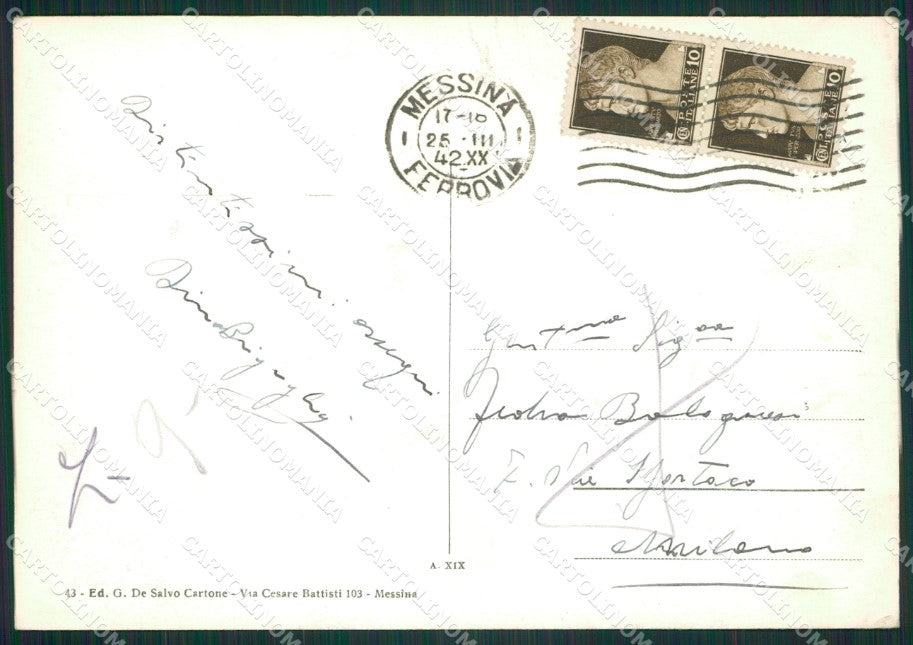 MESSINA
17-18
25 · III
42.XX
FERROVIA
10 POSTE ITALIANE
10 POSTE ITALIANE
Distintissimi ossequi
Gent.ma Sig.ra
Bolognesi
7. Viale Spartaco
Milano
A. XIX
43 - Ed. G. De Salvo Cartone - Via Cesare Battisti 103 - Messina
CARTOLINOMANIA